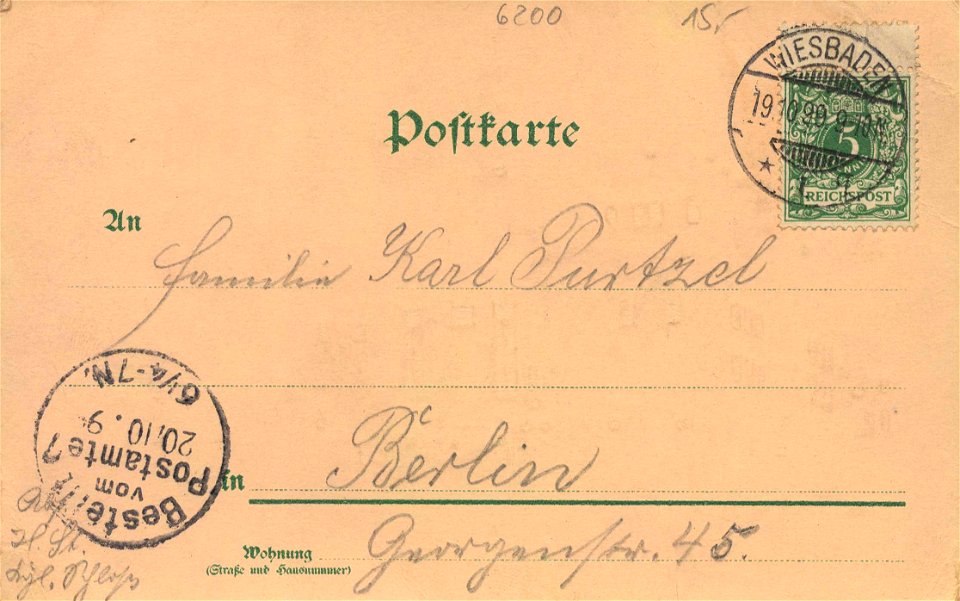 6200
15,-
WIESBADEN
19.10.99 9-10N.
* 1 *
5
REICHSPOST
Postkarte
An
Familie Karl Purtzel
6¼-7N.
20.10.9
Postamte 7
vom
Bestellt
in Berlin
Wohnung Georgenstr. 45.
(Straße und Hausnummer)
Kgl. Schloss